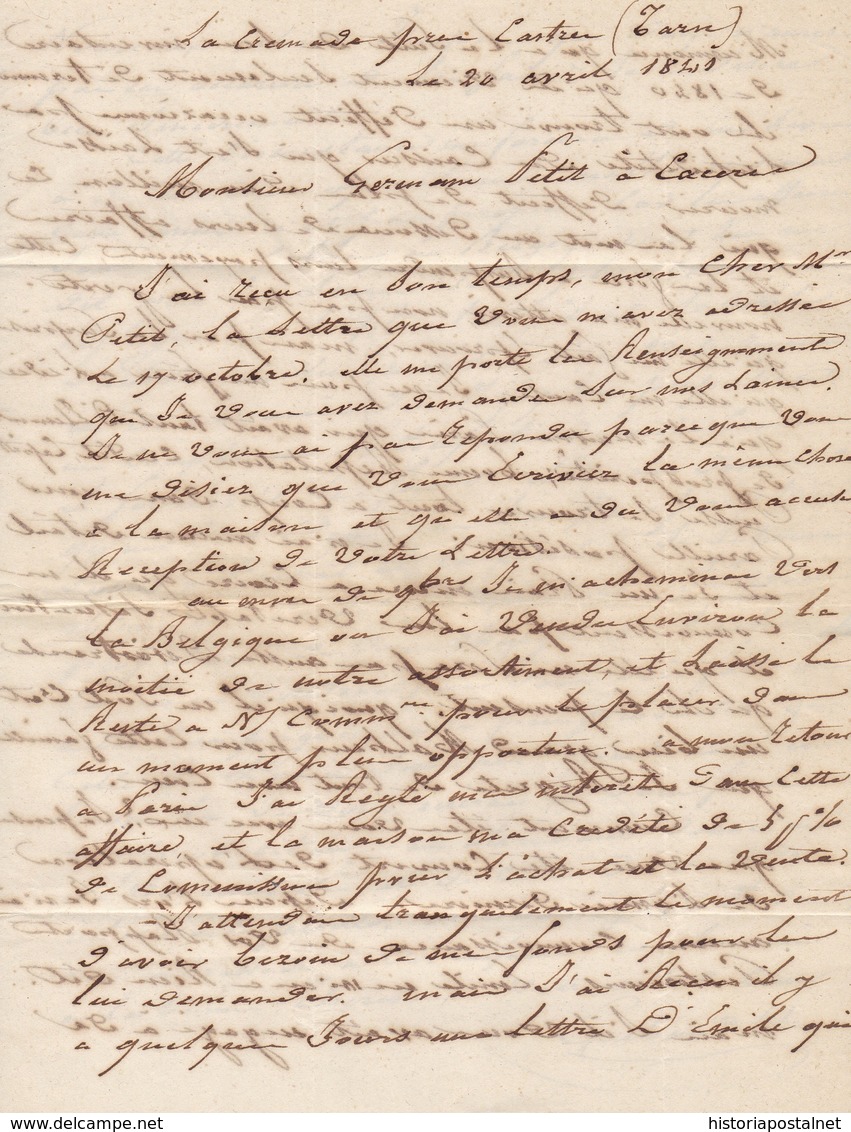 La Cremade pres Castres (Tarn)
Le 20 avril 1841
Monsieur Germain Petit à Caceres
J'ai reçu en bon temps, mon Cher Mr
Petit, la Lettre que Vous m'avez adressée
Le 17 octobre. elle me porte les Renseignements
que Je Vous avez demandés Sur nos Laines.
Je ne Vous ai pas repondu parceque Vous
me disiez que Vous Ecriviez la même chose
a la maison et qu'elle a du Vous accuser
Reception de Votre Lettre.
au mois de 9bre Je m'acheminai Vers
la Belgique ou J'ai Vendu Environ la
moitié de notre assortiment, et Laissé le
Reste a N/ Commre pour le placer dans
un moment plus opportun. a mon Retour
a Paris J'ai Reglé mes interets Dans Cette
affaire, et la maison m'a Credité de 5 p%
de Commission pour L'achat et la Vente.
J'attendais tranquilement le moment
d'avoir bezoin de mes fonds pour les
lui demander. mais J'ai Reçu il y
a quelques Jours une Lettre D'Emile qui
historiapostalnet